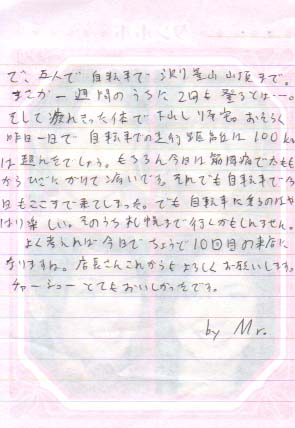 で、五人で自転車で渡り登山山頂まで。
まさか一週間のうちに2回も登るとは…。
そして疲れきった体で下山し帰宅。おそらく
昨日一日で自転車での走行距離は100km
は超えたでしょう。もちろん今日は筋肉痛で太もも
からひざにかけて痛いです。それでも自転車で今
日もここまで来てしまった。でも自転車に乗るのはや
はり楽しい。そのうち札幌まで行くかもしれません。
よく考えれば今日でちょうど10回目の来店に
なりますね。店長さんこれからもよろしくお願いします。
チャーシューとてもおいしかったです。
by Mr.